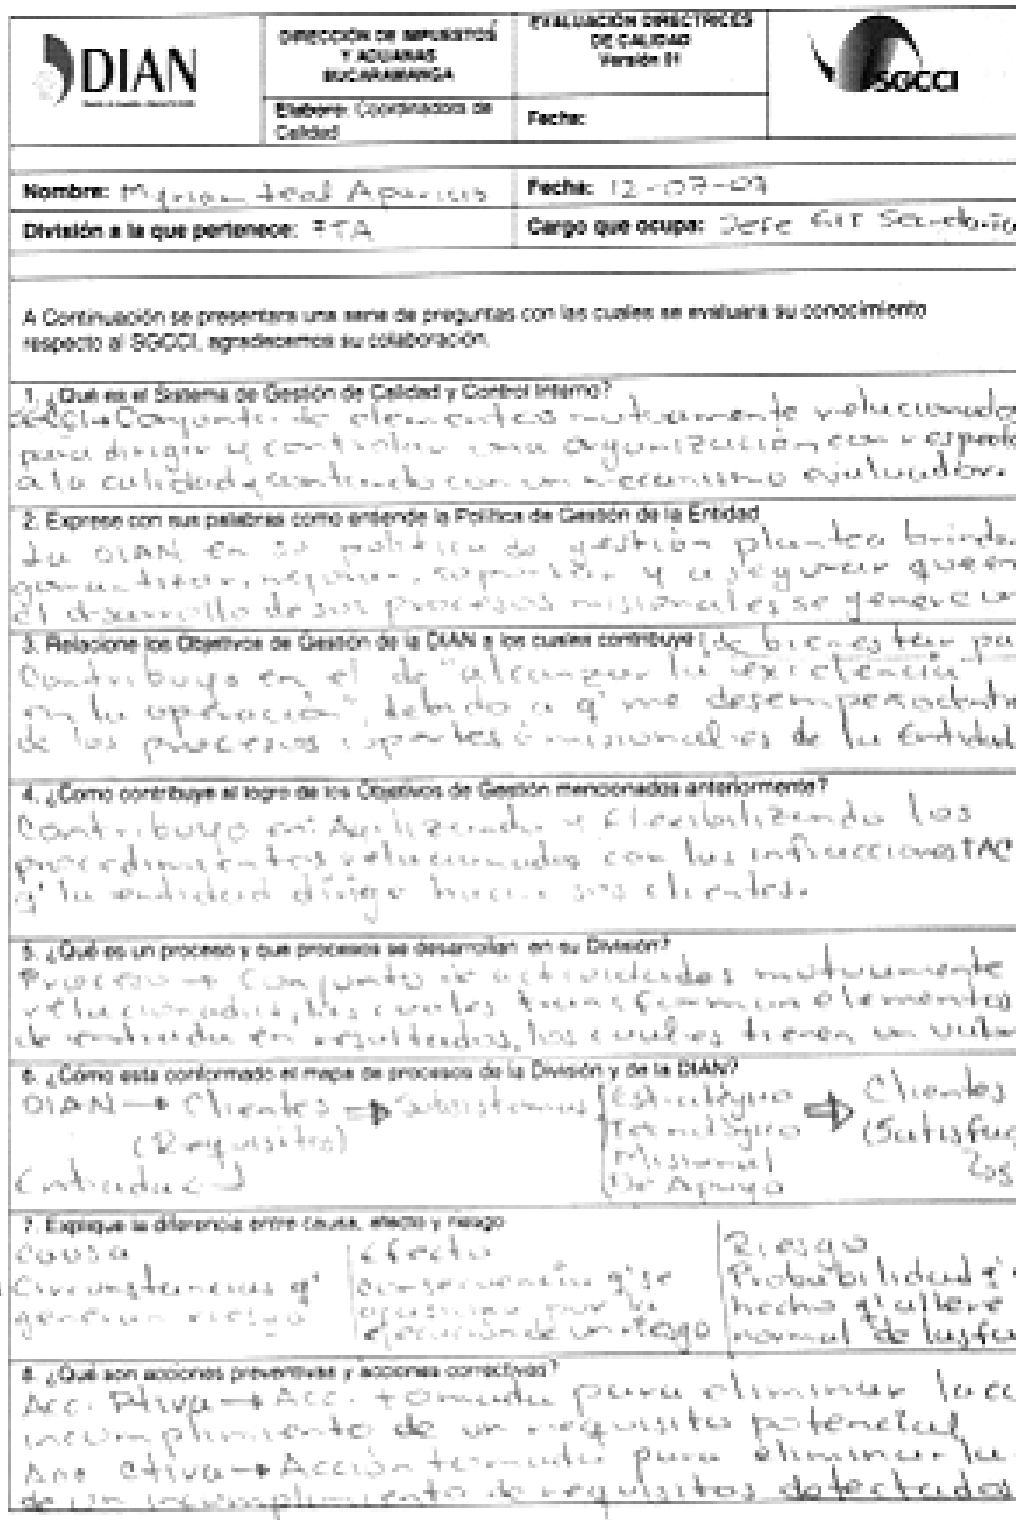 DIAN
DIRECCIÓN DE IMPUESTOS
Y ADUANAS
BUCARAMANGA
Elaboro: Coordinadora de
Calidad
EVALUACIÓN DIRECTRICES
DE CALIDAD
Versión 01
Fecha:
SGCCI
Nombre: Myriam Leal Aparicio
Fecha: 12-07-07
División a la que pertenece: FTA
Cargo que ocupa: Jefe GIT Secretaria
A Continuación se presentara una serie de preguntas con las cuales se evaluara su conocimiento
respecto al SGCCI, agradecemos su colaboración.
1. ¿Qué es el Sistema de Gestión de Calidad y Control Interno?
Conjunto de elementos mutuamente relacionados
para dirigir y controlar una organización con respecto
a la calidad, contando con un mecanismo evaluador.
2. Exprese con sus palabras como entiende la Política de Gestión de la Entidad
La DIAN en su política de gestión plantea brindar
y asegurar que en
el desarrollo de sus procesos misionales se genere un
3. Relacione los Objetivos de Gestión de la DIAN a los cuales contribuye (de bienestar pa
Contribuyo en el de "alcanzar la excelencia
en la operación", debido a q' me desempeño dentro
de los procesos misionales de la Entidad
4. ¿Como contribuye al logro de los Objetivos de Gestión mencionados anteriormente?
Contribuyo en: Agilizando y flexibilizando los
procedimientos relacionados con las infracciones TAC
q' la entidad dirige hacia sus clientes.
5. ¿Qué es un proceso y que procesos se desarrollan en su División?
Proceso → Conjunto de actividades mutuamente
relacionadas, las cuales transforman elementos
de entrada en resultados, los cuales tienen un valor
6. ¿Cómo esta conformado el mapa de procesos de la División y de la DIAN?
DIAN → Clientes → Subsistemas Estratégico ⇒ Clientes
(Requisitos) (Satisfac
Misional
De Apoyo
7. Explique la diferencia entre causa, efecto y riesgo
Causa Efecto Riesgo
Circunstancias q' consecuencia q' se Probabilidad q'
generan riesgo por la hecho q' altere
ejecución de un riesgo normal de las fu
8. ¿Qué son acciones preventivas y acciones correctivas?
Acc. Ptiva → Acc. tomada para eliminar la
incumplimiento de un requisito potencial
Ctiva → Acción tomada para eliminar la
de un incumplimiento de requisitos detectados